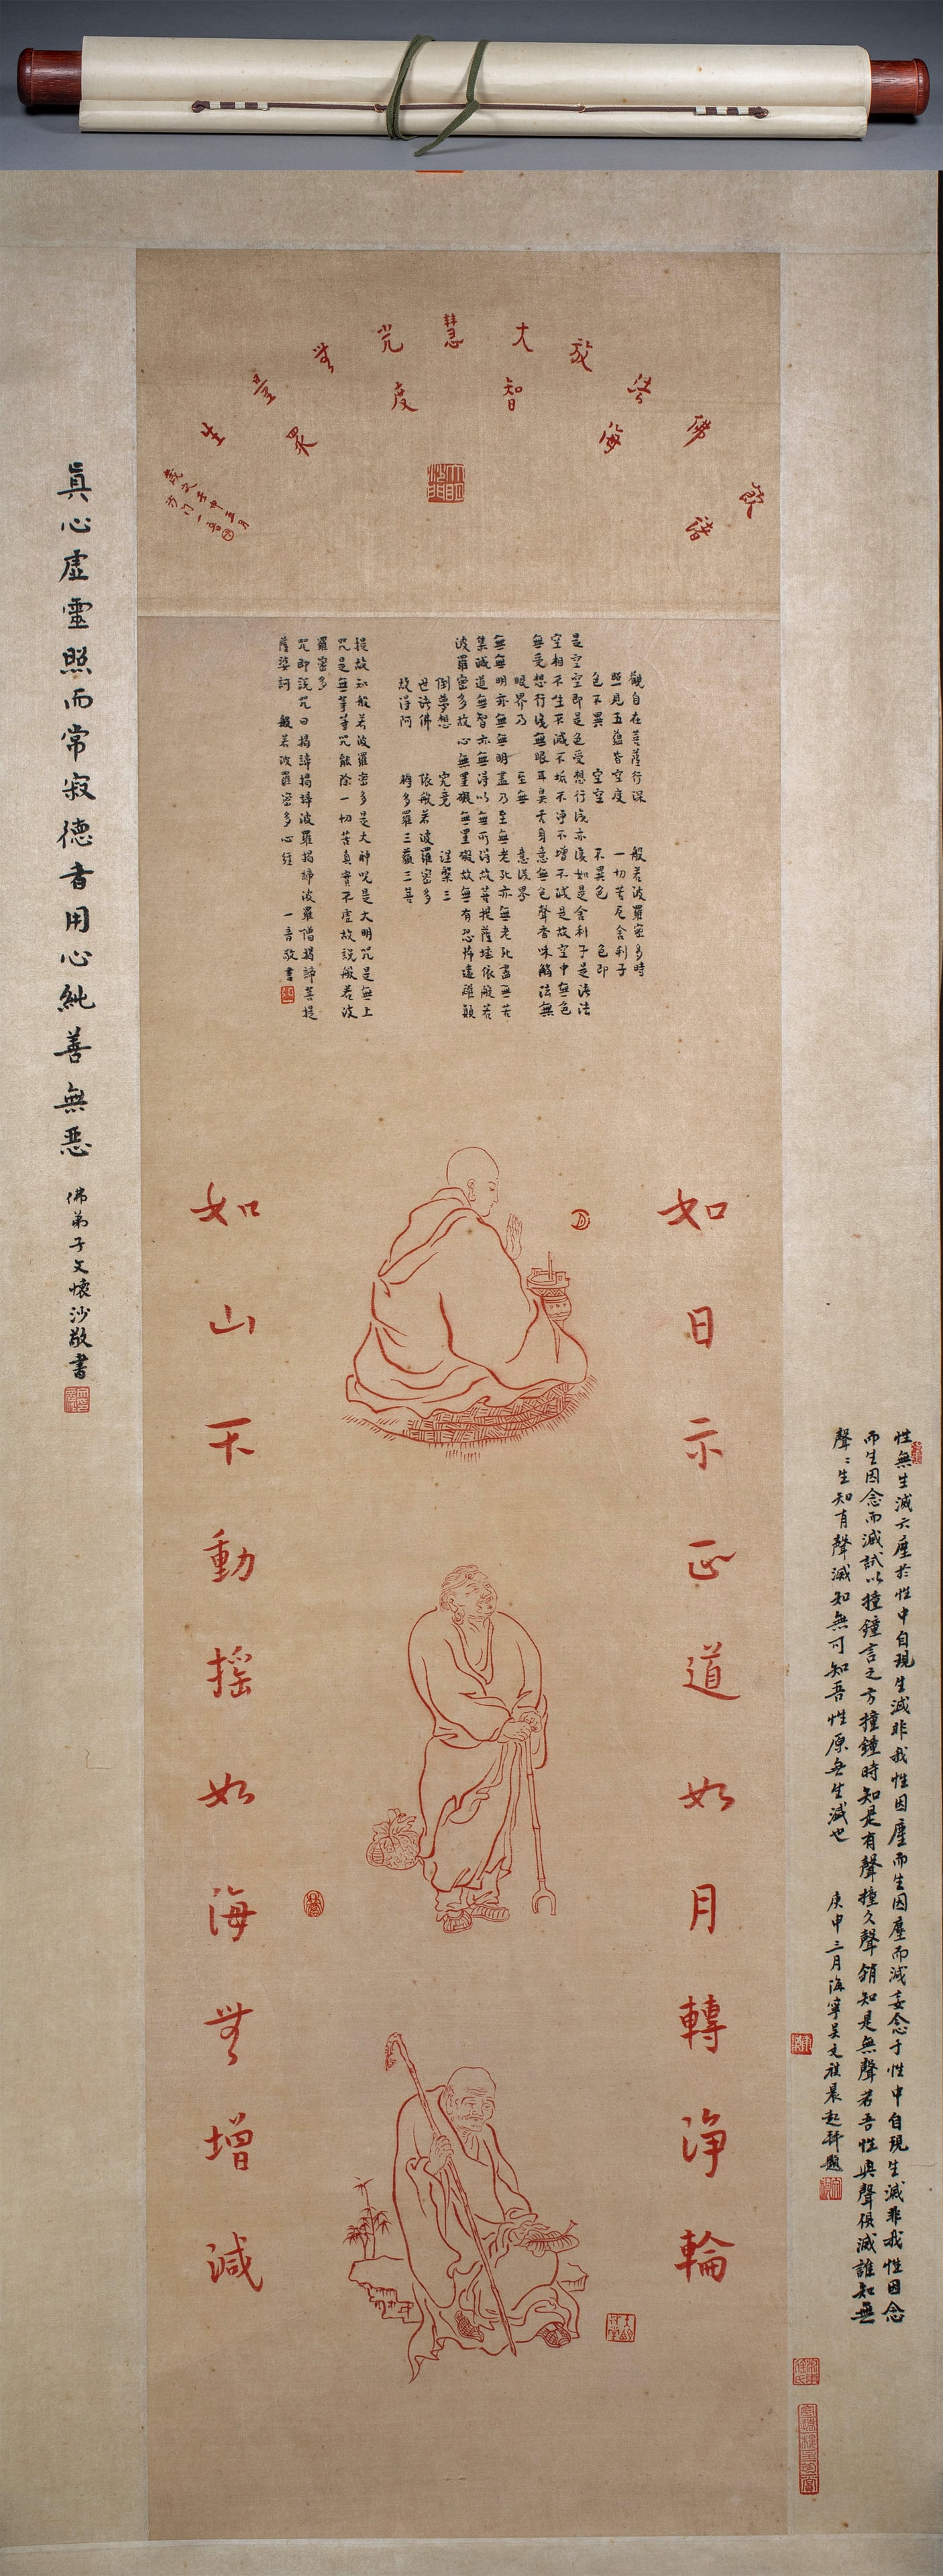 諸佛海放大智慧光度無量眾生
歲次壬申五月
沙門一音
觀自在菩薩行深 般若波羅蜜多時
照見五蘊皆空度 一切苦厄舍利子
色不異 空空 不異色 色即
是空空即是色受想行識亦復如是舍利子是諸法
空相不生不滅不垢不淨不增不減是故空中無色
無受想行識無眼耳鼻舌身意無色聲香味觸法無
眼界乃 至無 意識界
無無明亦無無明盡乃至無老死亦無老死盡無苦
集滅道無智亦無得以無所得故菩提薩埵依般若
波羅蜜多故心無罣礙無罣礙故無有恐怖遠離顛
倒夢想 究竟 涅槃三
世諸佛 依般若波羅蜜多
故得阿 耨多羅三藐三菩
提故知般若波羅蜜多是大神咒是大明咒是無上
咒是無等等咒能除一切苦真實不虛故說般若波
羅蜜多
咒即說咒曰揭諦揭諦波羅揭諦波羅僧揭諦菩提
薩婆訶 般若波羅蜜多心經 一音敬書
如日示正道如月轉淨輪
如山不動搖如海無增減
性無生滅六塵於性中自現生滅非我性因塵而生因塵而滅妄念于性中自現生滅非我性因念
而生因念而滅試以撞鐘言之方撞鐘時知是有聲撞久聲銷知是無聲若吾性與聲俱滅誰知無
聲聲生知有聲滅知無可知吾性原無生滅也 庚申三月海寧吴文祺晨起拜題
真心虛靈照而常寂德者用心純善無惡 佛弟子文懷沙敬書